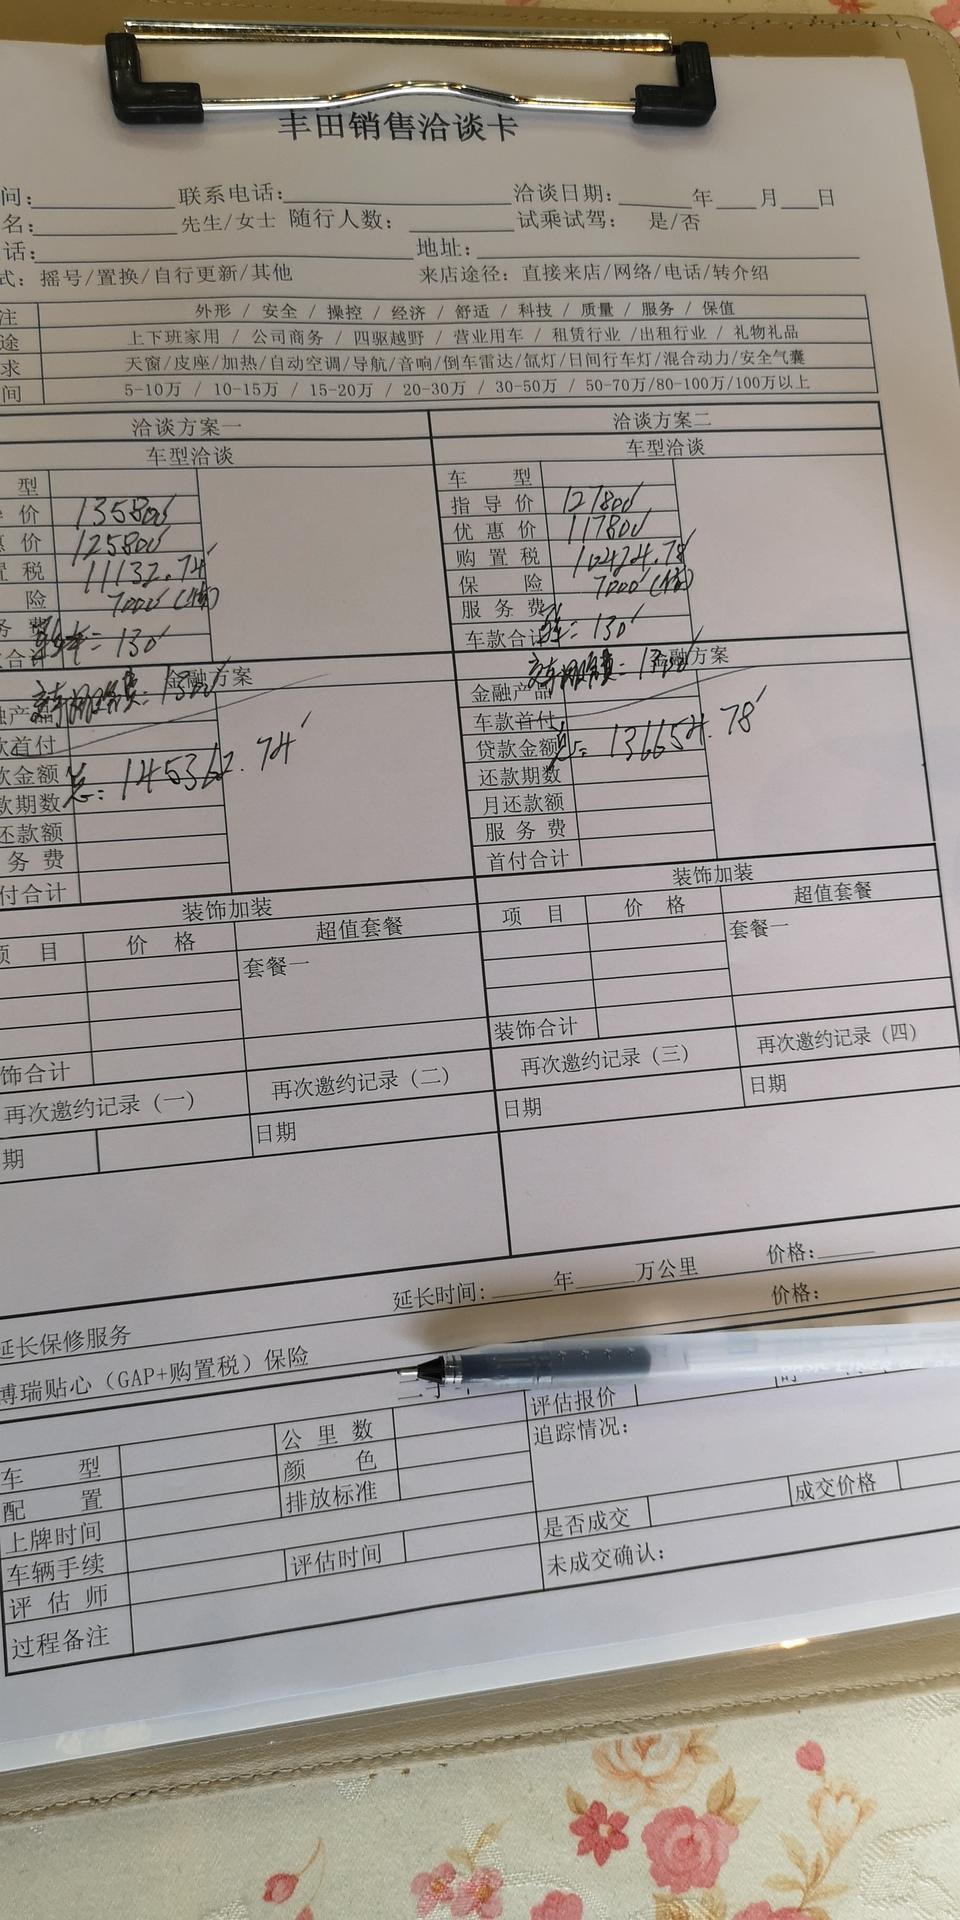 丰田销售洽谈卡
问: 联系电话: 洽谈日期: 年 月 日
名: 先生/女士 随行人数: 试乘试驾: 是/否
话: 地址:
式: 摇号/置换/自行更新/其他 来店途径: 直接来店/网络/电话/转介绍
注 外形 / 安全 / 操控 / 经济 / 舒适 / 科技 / 质量 / 服务 / 保值
途 上下班家用 / 公司商务 / 四驱越野 / 营业用车 / 租赁行业 /出租行业 / 礼物礼品
求 天窗/皮座/加热/自动空调/导航/音响/倒车雷达/氙灯/日间行车灯/混合动力/安全气囊
间 5-10万 / 10-15万 / 15-20万 / 20-30万 / 30-50万 / 50-70万/80-100万/100万以上
洽谈方案一 洽谈方案二
车型洽谈 车型洽谈
型 车 型
价 135800 指导价 127800
惠价 125800 优惠价 117800
置税 11132.74 购置税 10424.78
险 7000 保 险 7000
务费 服务费
合计 = 130 车款合计 = 130
金融方案 金融方案
融产品 金融产品
款首付 车款首付
款金额 总: 145362.74 贷款金额 总: 136654.78
款期数 还款期数
还款额 月还款额
务费 服务费
付合计 首付合计
装饰加装 装饰加装
项目 价格 超值套餐 项目 价格 超值套餐
套餐一 套餐一
饰合计 装饰合计
再次邀约记录（一） 再次邀约记录（二） 再次邀约记录（三） 再次邀约记录（四）
期 日期 日期 日期
延长保修服务 延长时间: 年 万公里 价格:
博瑞贴心（GAP+购置税）保险 价格:
评估报价
车 型 公里数 追踪情况:
配 置 颜 色
上牌时间 排放标准 成交价格
车辆手续 评估时间 是否成交
评估师 未成交确认:
过程备注